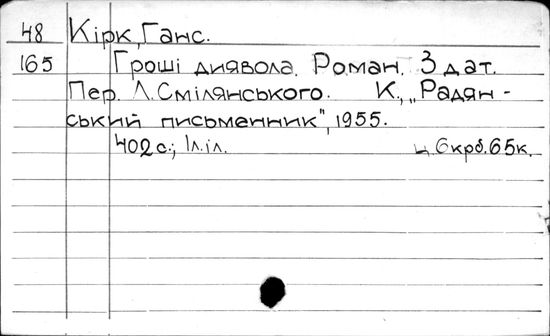 48 Кірк, Ганс.
165 Гроші диявола. Роман. З дат.
Пер. Л. Смілянського. К., „Радян-
ський письменник", 1955.
402 с.; 1л. іл. ц. 6крб. 65к.